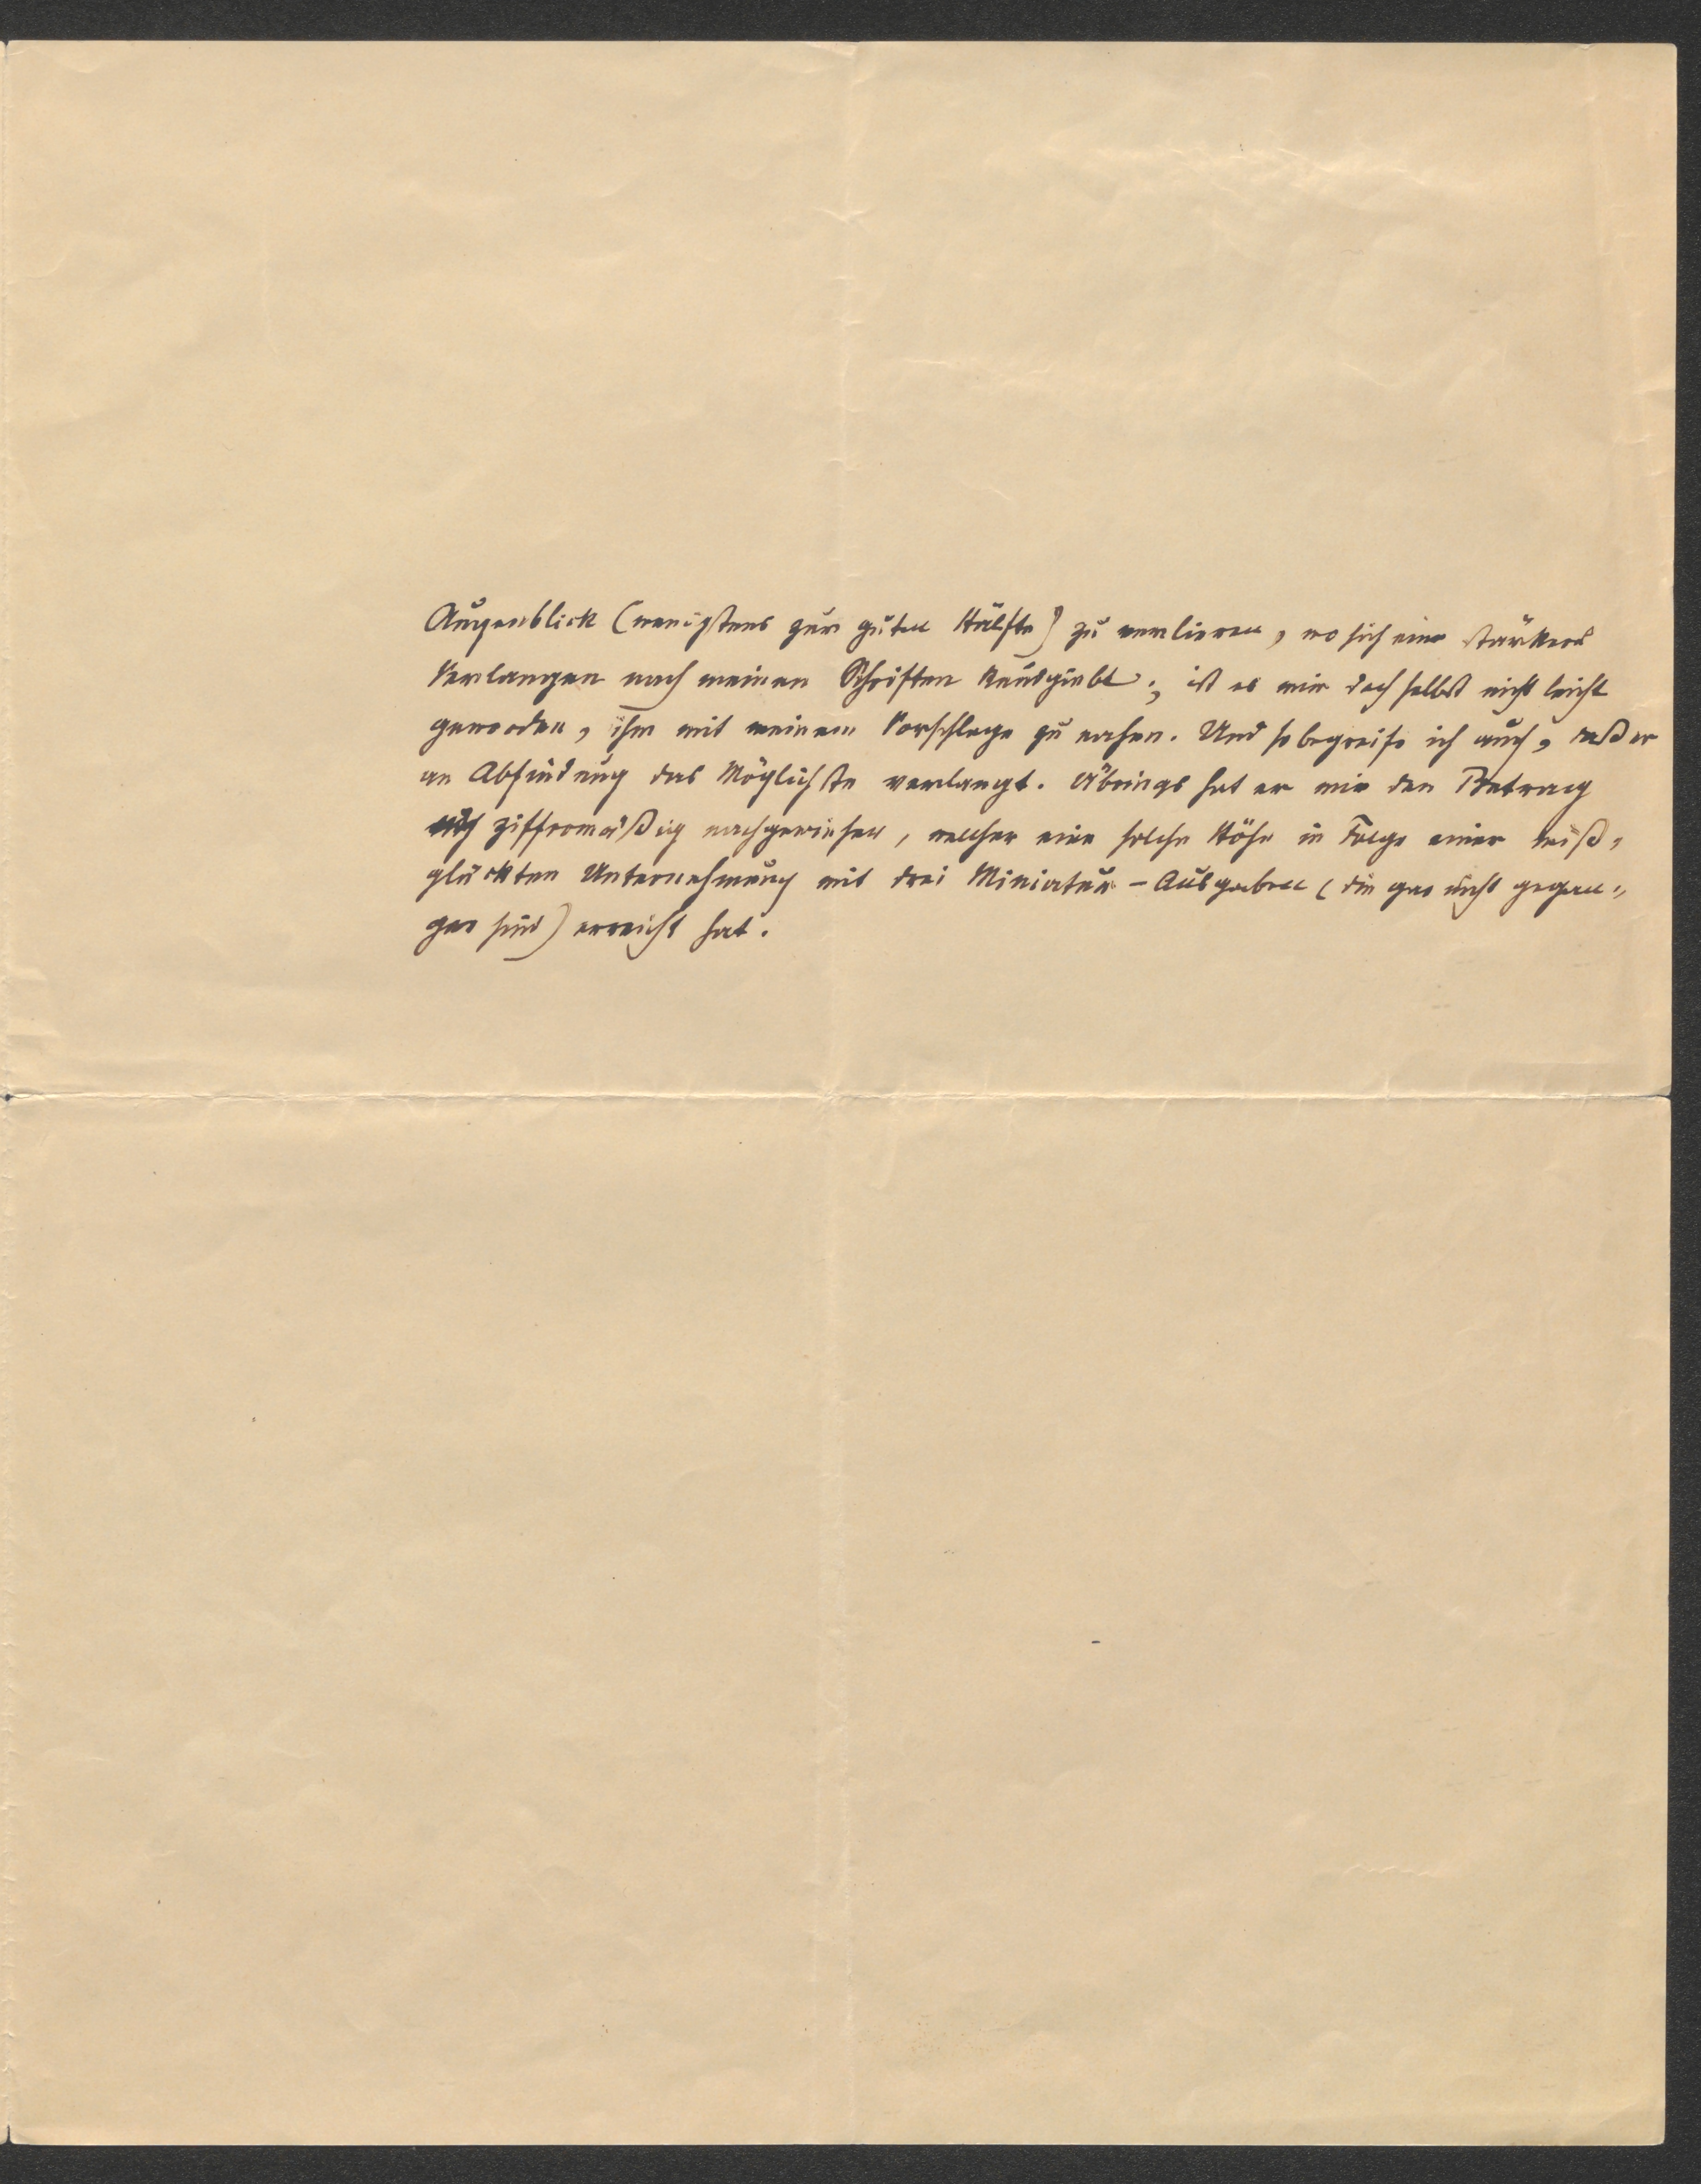 Augenblick (wenigstens zur guten Hälfte) zu verlieren, wo sich eine stärkere
Verlangen nach meinen Schriften kundgiebt; ist es mir doch selbst nicht leicht
geworden, ihm mit meinem Vorschlage zu nahen. Und so begreife ich auch, daß er
an Abfindung das Möglichste verlangt. Übrings hat er mir den Betrag
auch ziffromäßig nachgewiesen, welcher eine solche Höhe in Folge einer miß-
glückten Unternehmung mit drei Miniatur-Ausgaben (die gar nicht gegan-
gen sind) erreicht hat.